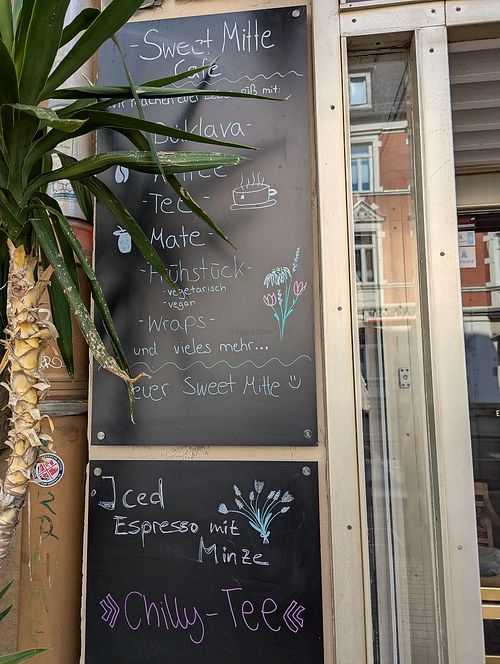 -Sweet Mitte
Cafe
Wir machen euer Leben süß mit:
Baklava-
Kaffee
-Tee-
-Mate-
-Frühstück-
-vegetarisch
-vegan
-Wraps-
und vieles mehr...
euer Sweet Mitte
Iced
Espresso mit
Minze
Chilly-Tee